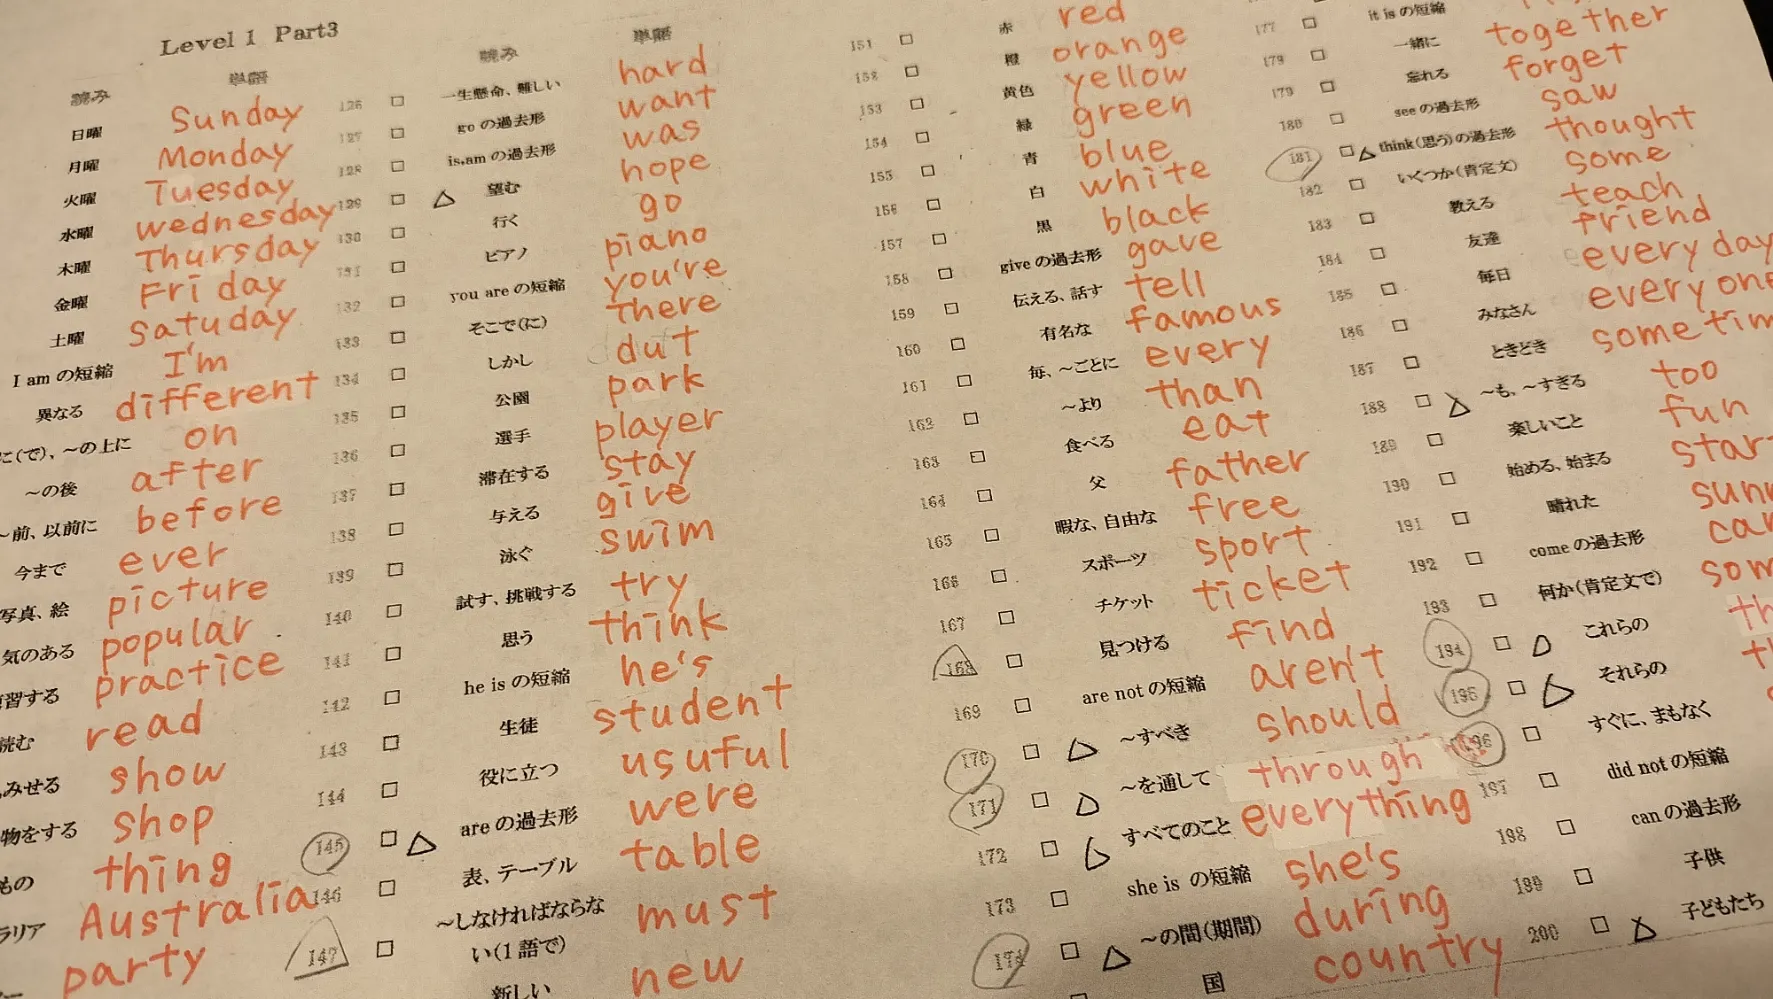 Level 1 Part3
読み 単語
日曜 Sunday
月曜 Monday
火曜 Tuesday
水曜 wednesday
木曜 Thursday
金曜 Friday
土曜 Satuday
I am の短縮 I'm
異なる different
に(で)、～の上に on
～の後 after
～前、以前に before
今まで ever
写真、絵 picture
気のある popular
習する practice
読む read
みせる show
物をする shop
もの thing
ラリア Australia
party
読み 単語
126 □ 一生懸命、難しい hard
127 □ go の過去形 want
128 □ is,am の過去形 was
129 □ △ 望む hope
130 □ 行く go
131 □ ピアノ piano
132 □ you are の短縮 you're
133 □ そこで(に) there
134 □ しかし dut
135 □ 公園 park
136 □ 選手 player
137 □ 滞在する stay
138 □ 与える give
139 □ 泳ぐ swim
140 □ 試す、挑戦する try
141 □ 思う think
142 □ he is の短縮 he's
143 □ 生徒 student
144 □ 役に立つ usuful
145 □ △ are の過去形 were
146 □ 表、テーブル table
147 □ ～しなければならな
い(1語で) must
新しい new
151 □ 赤 red
152 □ 橙 orange
153 □ 黄色 yellow
154 □ 緑 green
155 □ 青 blue
156 □ 白 white
157 □ 黒 black
158 □ give の過去形 gave
159 □ 伝える、話す tell
160 □ 有名な famous
161 □ 毎、～ごとに every
162 □ ～より than
163 □ 食べる eat
164 □ 父 father
165 □ 暇な、自由な free
166 □ スポーツ sport
167 □ チケット ticket
168 □ 見つける find
169 □ are not の短縮 aren't
170 □ △ ～すべき should
171 □ △ ～を通して through
172 □ △ すべてのこと everything
173 □ she is の短縮 she's
174 □ △ ～の間(期間) during
国 country
177 □ it is の短縮
178 □ 一緒に together
179 □ 忘れる forget
180 □ see の過去形 saw
181 □ △ think(思う)の過去形 thought
182 □ いくつか(肯定文) some
183 □ 教える teach
184 □ 友達 friend
185 □ 毎日 every day
186 □ みなさん everyone
187 □ ときどき sometim
188 □ △ ～も、～すぎる too
189 □ 楽しいこと fun
190 □ 始める、始まる star
191 □ 晴れた sun
192 □ come の過去形 ca
193 □ 何か(肯定文で) som
194 □ △ これらの th
195 □ △ それらの t
196 □ すぐに、まもなく
197 □ did not の短縮
198 □ can の過去形
199 □ 子供
200 □ △ 子どもたち